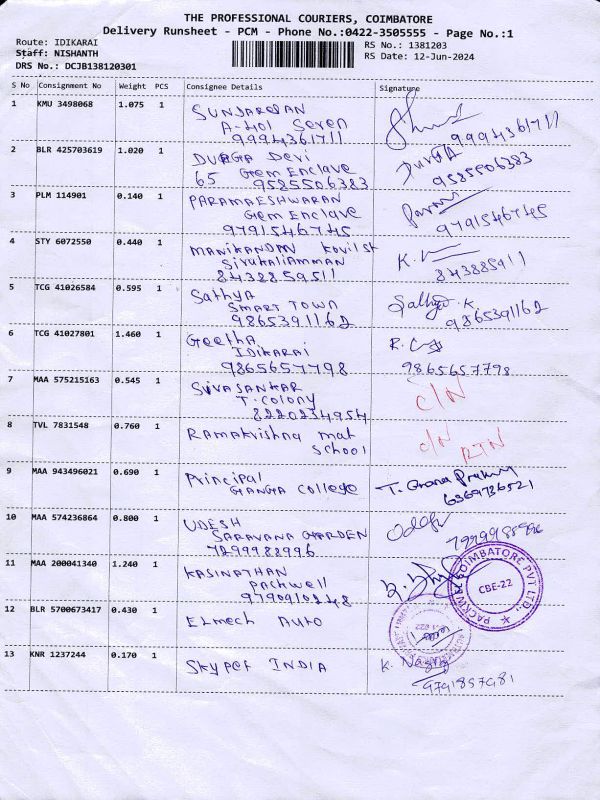 THE PROFESSIONAL COURIERS, COIMBATORE
Delivery Runsheet - PCM - Phone No.:0422-3505555 - Page No.:1
Route: IDIKARAI
RS No.: 1381203
Staff: NISHANTH
RS Date: 12-Jun-2024
DRS No.: DCJB138120301
S No Consignment No Weight PCS Consignee Details Signature
1 KMU 3498068 1.075 1
A-401 Seven
9994361711 9994361711
2 BLR 425703619 1.020 1 DURGA Devi Durga
65 Gem Enclave
9585506383 9585506383
3 PLM 114901 0.140 1 PARAMAESHWARAN
Gem Enclave
9791546745 9791546745
4 STY 6072550 0.440 1 MANIKANDAN Kovil st
Sivukaliamman
8438859511 843885911
5 TCG 41026584 0.595 1 Sathya Sathya. K
SMART TOWN
9865391162 9865391162
6 TCG 41027801 1.460 1 Geetha
IDIKARAI
9865657798 9865657798
7 MAA 575215163 0.545 1 SIVASANKAR C/N
T. Colony
8220234954
8 TVL 7831548 0.760 1 Ramakrishna mat C/N RTN
School
9 MAA 943496021 0.690 1 Principal
GANGA College 6369736521
10 MAA 574236864 0.800 1 UDESH
SARAVANA GARDEN
7299988996
11 MAA 200041340 1.240 1 KASINATHAN
Packwell
CBE-22
12 BLR 5700673417 0.430 1 Elmech Auto
13 KNR 1237244 0.170 1 Skypet INDIA
9791857981